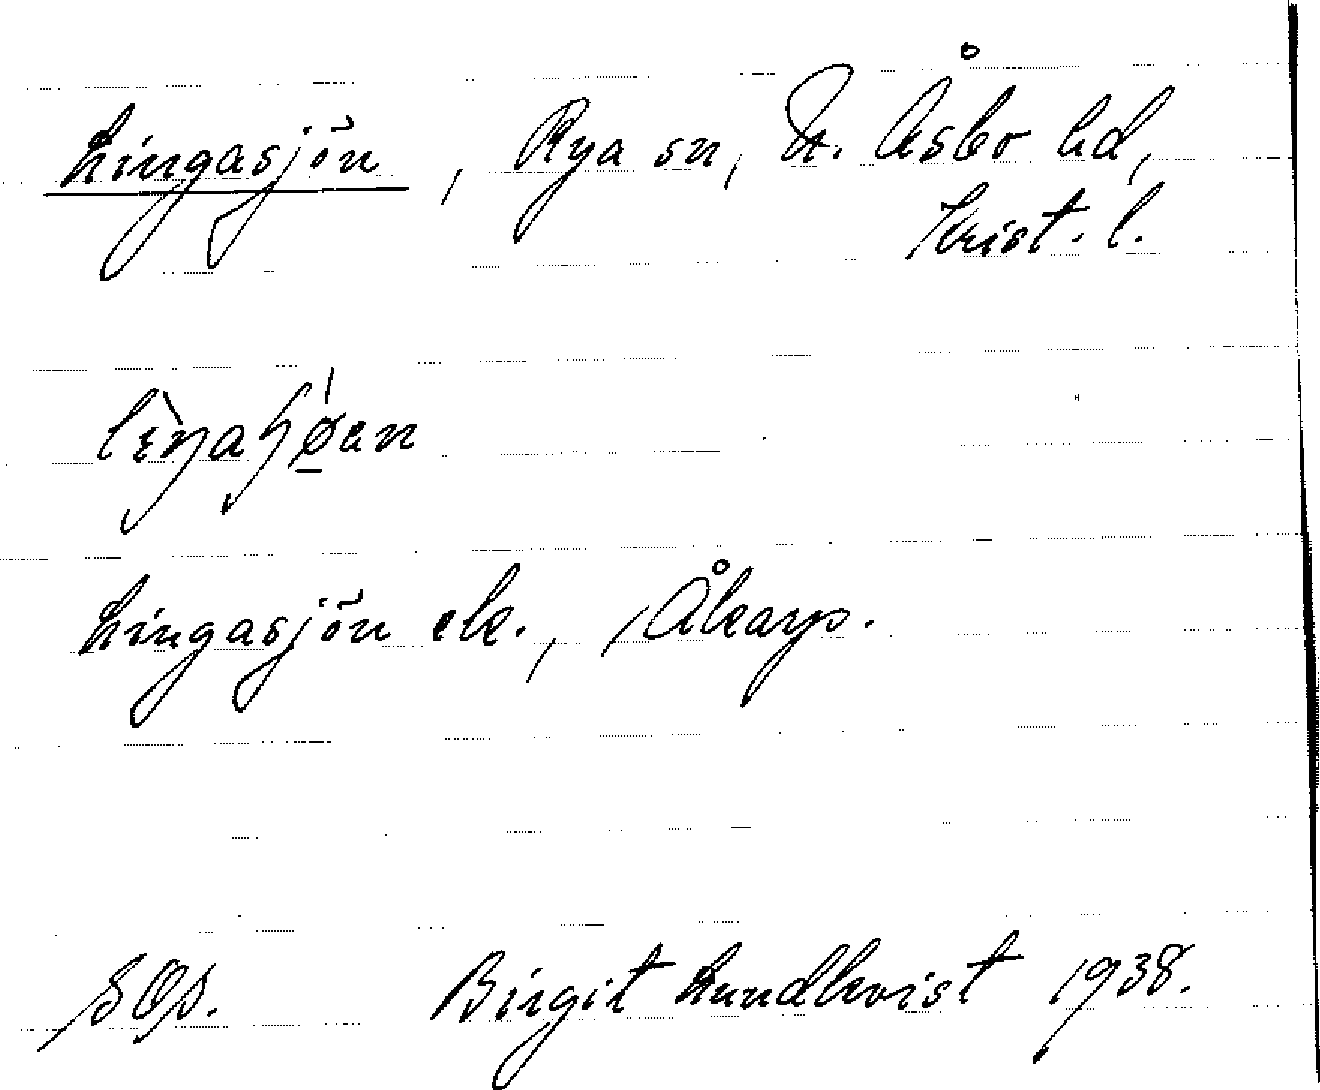 Lingasjön, Rya sn, N. Åsbo hd,
Krist. l.
Lingasjön ek., Åkarp.
Birgit Lundkvist 1938.